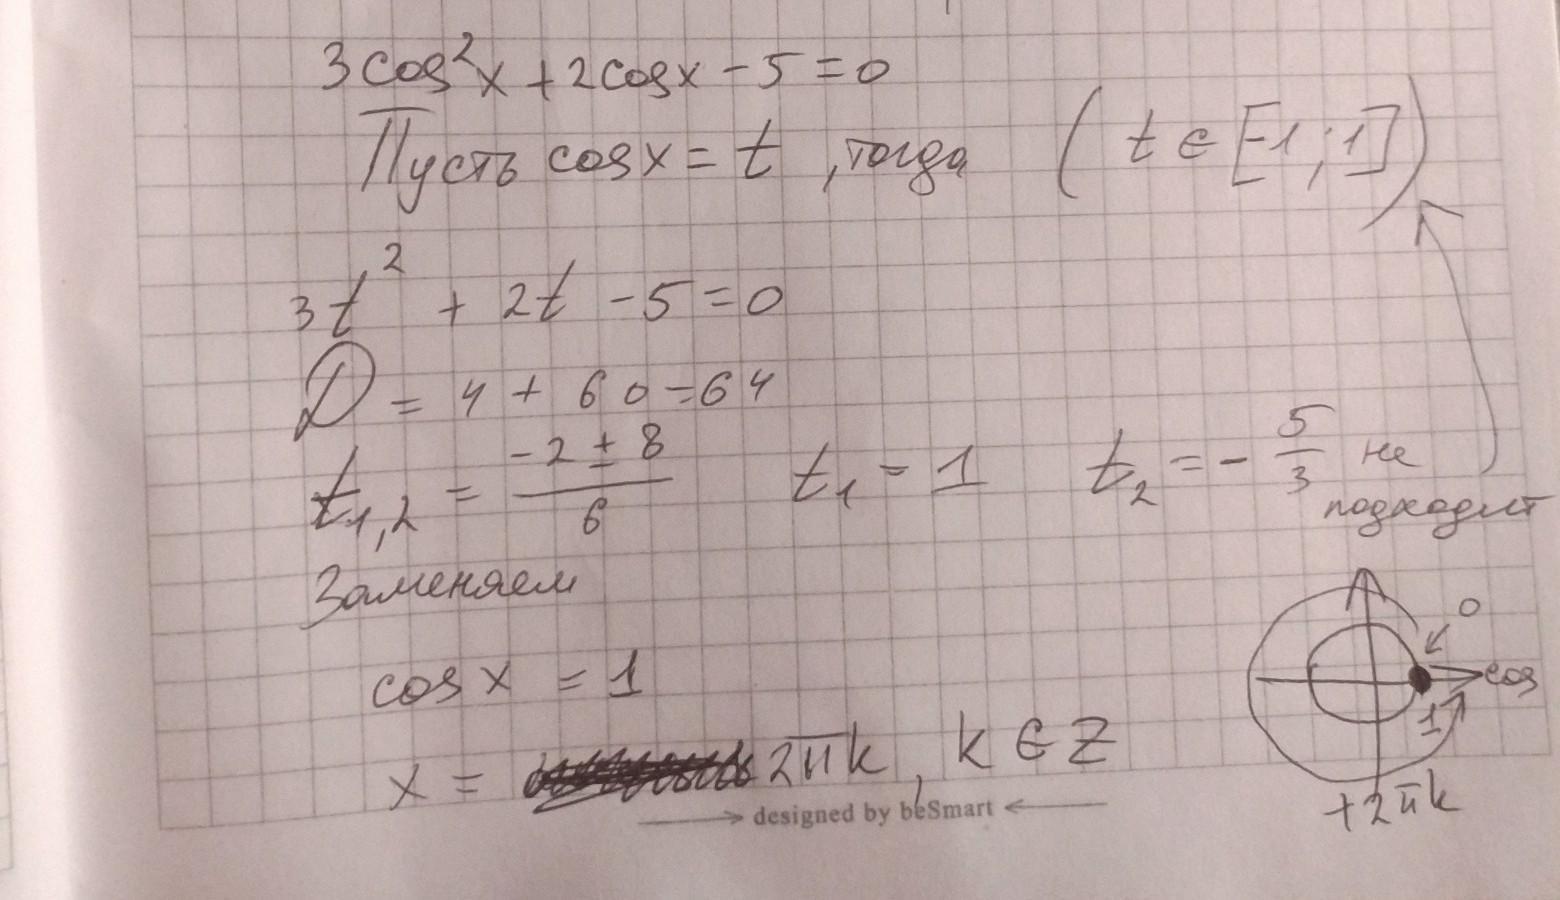 3cos²x + 2cosx - 5 = 0
Пусть cosx = t , тогда ( t ∈ [-1 ; 1] )
3t² + 2t - 5 = 0
D = 4 + 60 = 64
t₁,₂ = (-2 ± 8)/6 t₁ = 1 t₂ = - 5/3 не подходит
Заменяем
0
cos x = 1
cos
1
x = 2πk, k ∈ Z
+2πk
designed by beSmart